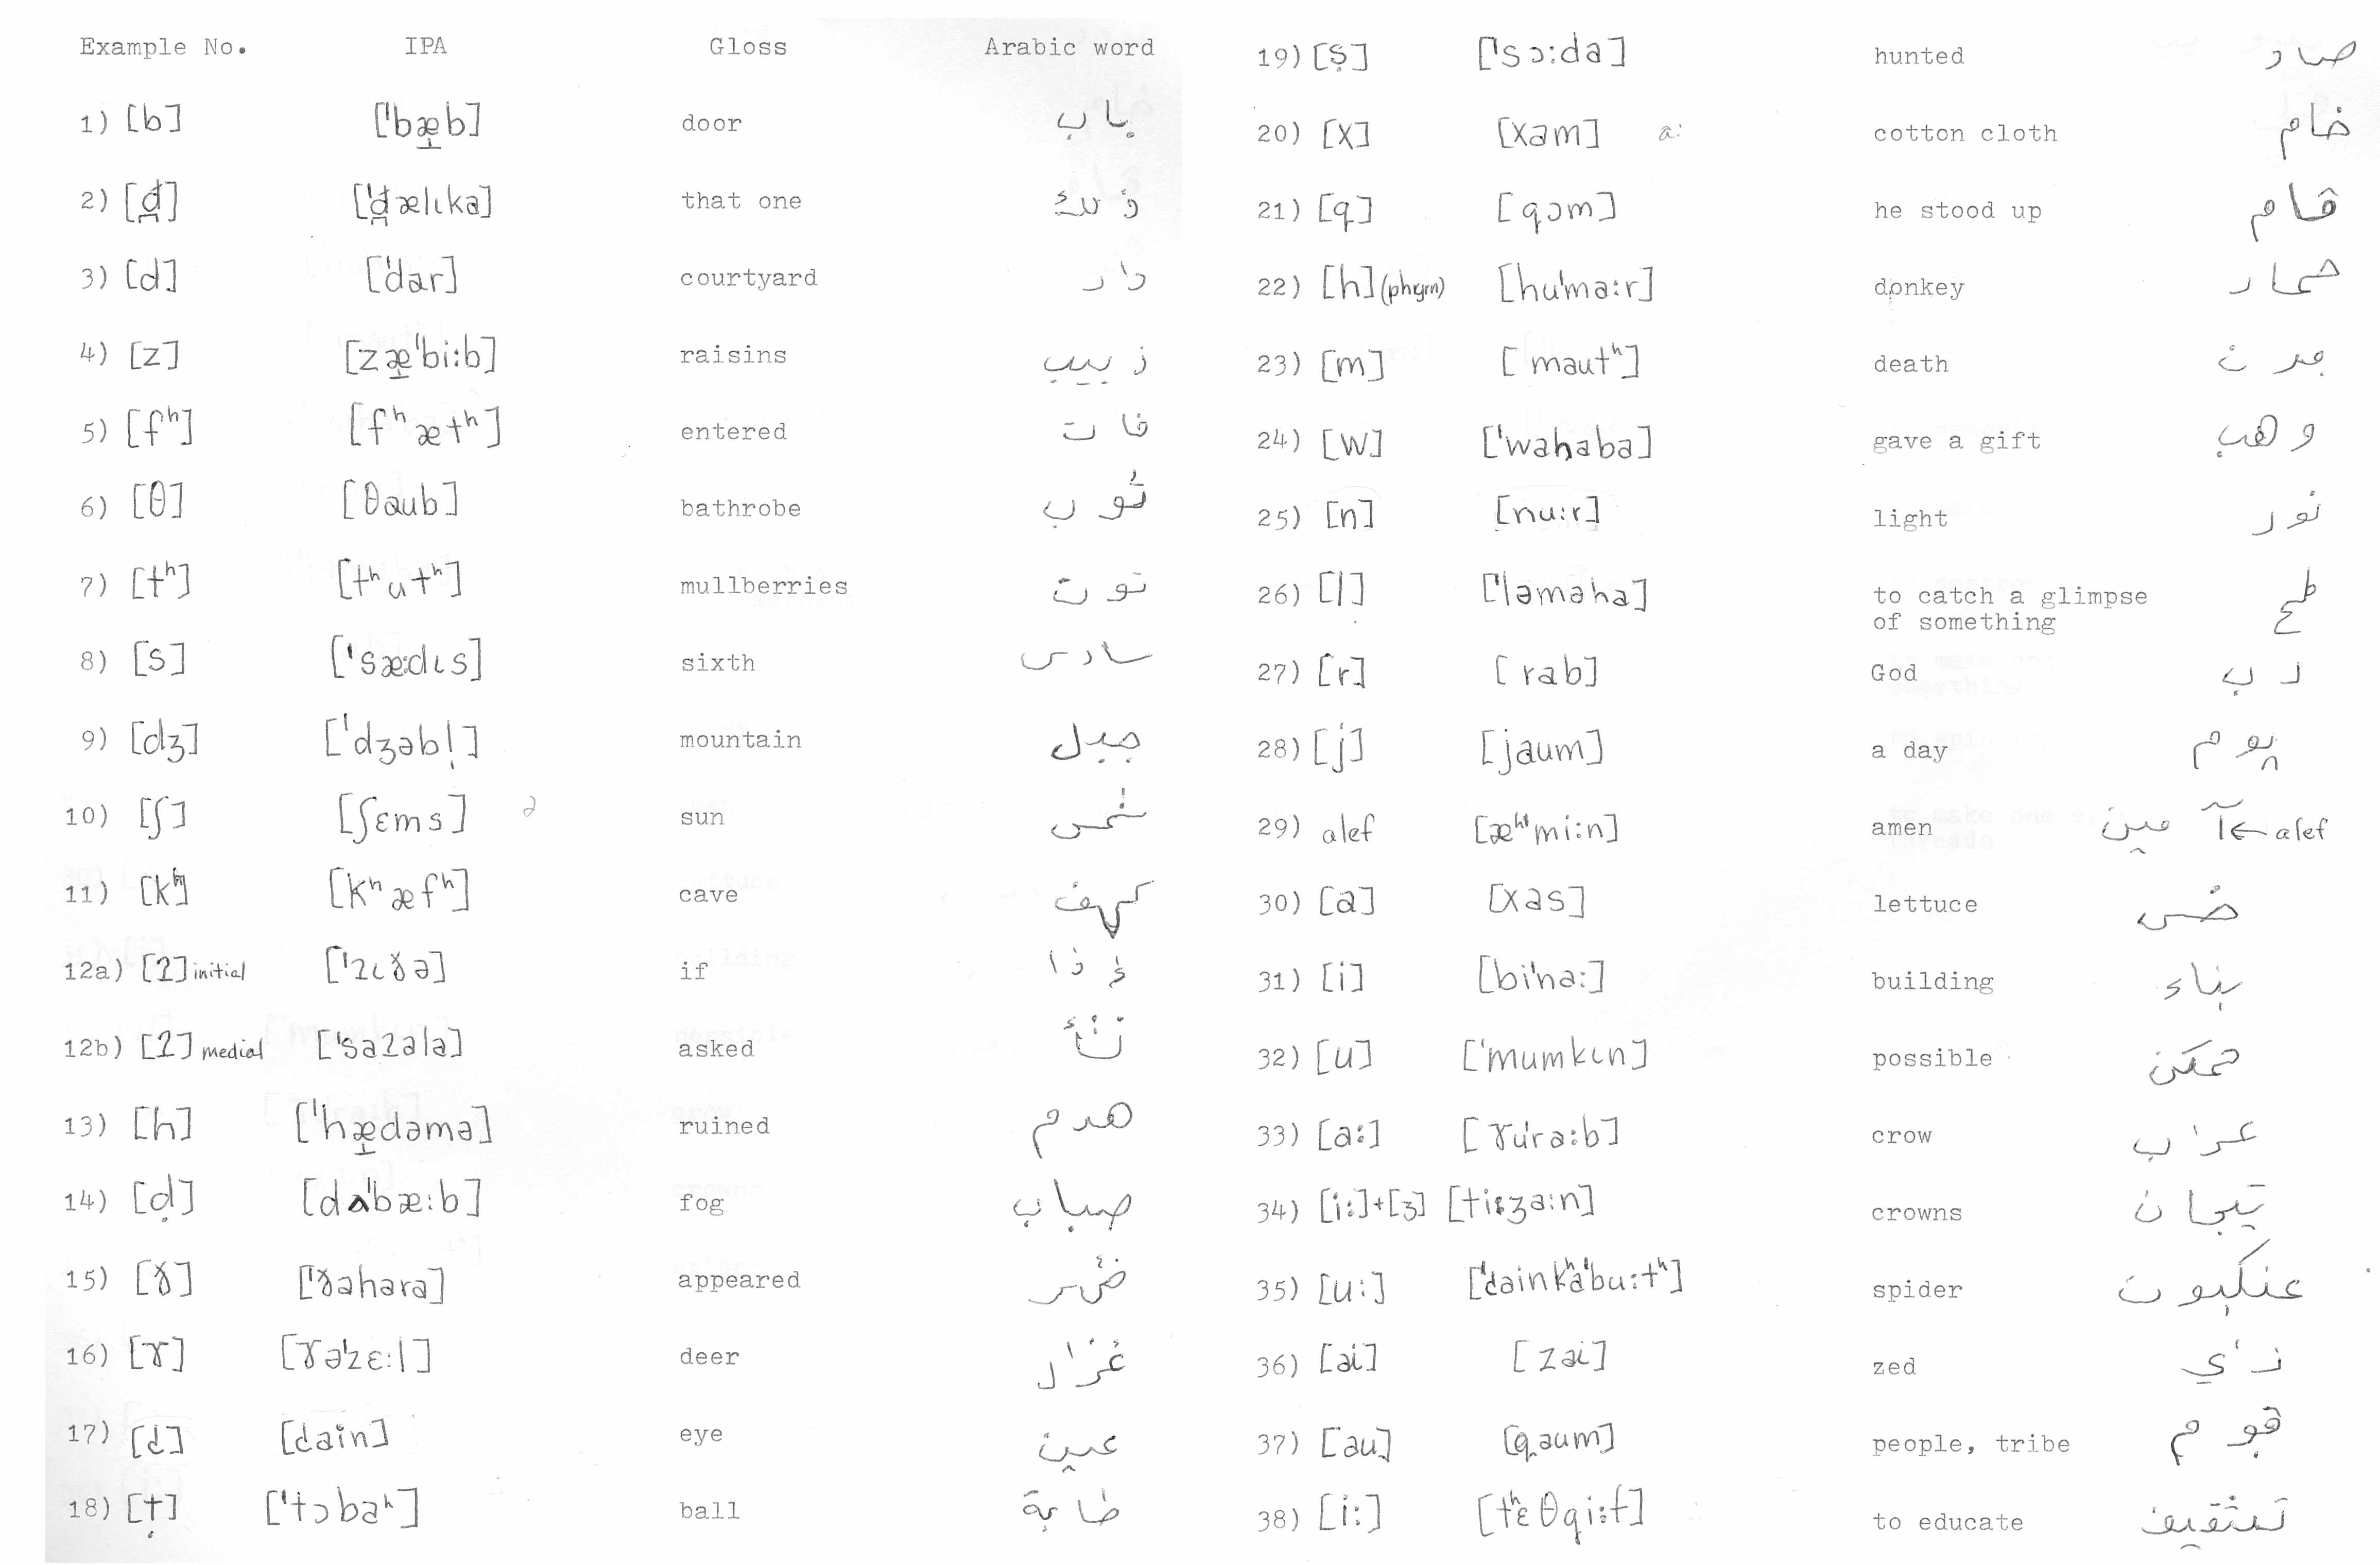 Example No. IPA Gloss Arabic word
1) [b] ['bæ̱b] door باب
2) [d̪] ['d̪ælɩka] that one ذلك
3) [d] ['dar] courtyard دار
4) [z] [zæ̱'bi:b] raisins زبيب
5) [fʰ] [fʰætʰ] entered فات
6) [θ] [θaub] bathrobe ثوب
7) [tʰ] [tʰutʰ] mullberries توت
8) [s] ['sæ:dɩs] sixth سادس
9) [dʒ] ['dʒəbl̩] mountain جبل
10) [ʃ] [ʃɛms] ə sun شمس
11) [kʰ] [kʰæfʰ] cave كهف
12a) [ʔ] initial ['ʔɩɣə] if إذا
12b) [ʔ] medial ['saʔala] asked
13) [h] ['hæ̱dəmə] ruined هدم
14) [ḍ] [da'bæ:b] fog ضباب
15) [ɣ] ['ɣahara] appeared
16) [ɤ] [ɤə'zɛ:l] deer غزال
17) [ʢ] [ʢain] eye عين
18) [ṭ] ['tɔbaʰ] ball طابة
19) [ṣ] ['sɔ:da] hunted صاد
20) [x] [xam] a: cotton cloth خام
21) [q] [qɔm] he stood up قام
22) [h] (phgrn) [hu'ma:r] donkey حمار
23) [m] [mautʰ] death موت
24) [w] ['wahaba] gave a gift وهب
25) [n] [nu:r] light نور
26) [l] ['ləməha] to catch a glimpse
of something لمح
27) [r] [rab] God رب
28) [j] [jaum] a day يوم
29) alef [æʰ'mi:n] amen آمين ← alef
30) [a] [xas] lettuce خس
31) [i] [bi'na:] building بناء
32) [u] ['mumkɩn] possible ممكن
33) [a:] [ɤu'ra:b] crow غراب
34) [i:]+[ʒ] [ti:ʒa:n] crowns تيجان
35) [u:] ['ʢainkʰa'bu:tʰ] spider عنكبوت
36) [ai] [zai] zed زاي
37) [au] [qaum] people, tribe قوم
38) [i:] [tʰɛθqi:f] to educate تثقيف